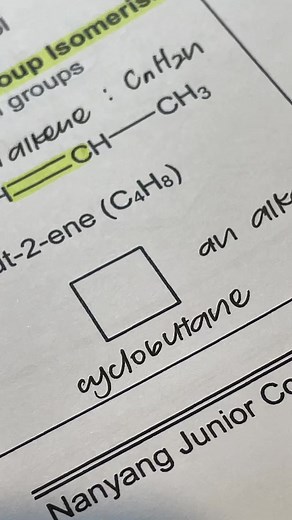 oup Isomeris
groups
alkene : CnH2n
CH—CH3
t-2-ene (C4H8)
an alk
cyclobutane
Nanyang Junior Co